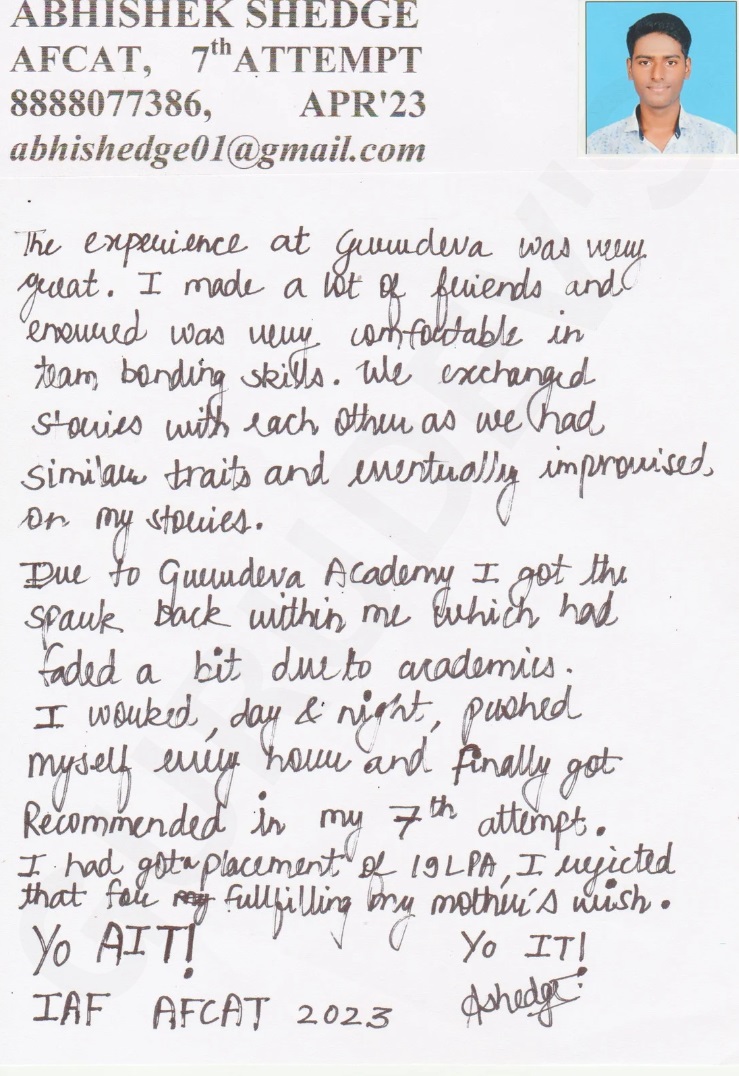 ABHISHEK SHEDGE
AFCAT, 7th ATTEMPT
8888077386, APR'23
abhishedge01@gmail.com
The experience at Gurudeva was very
great. I made a lot of friends and
ensured was very comfortable in
team bonding skills. We exchanged
stories with each other as we had
similar traits and eventually improvised
on my stories.
Due to Gurudeva Academy I got the
spark back within me which had
faded a bit due to academics.
I worked, day & night, pushed
myself every hour and finally got
Recommended in my 7th attempt.
I had got a placement of 19LPA, I rejected
that for my fullfilling my mother's wish.
Yo AIT! Yo IT!
IAF AFCAT 2023 Ashedge
GURUDEV'S